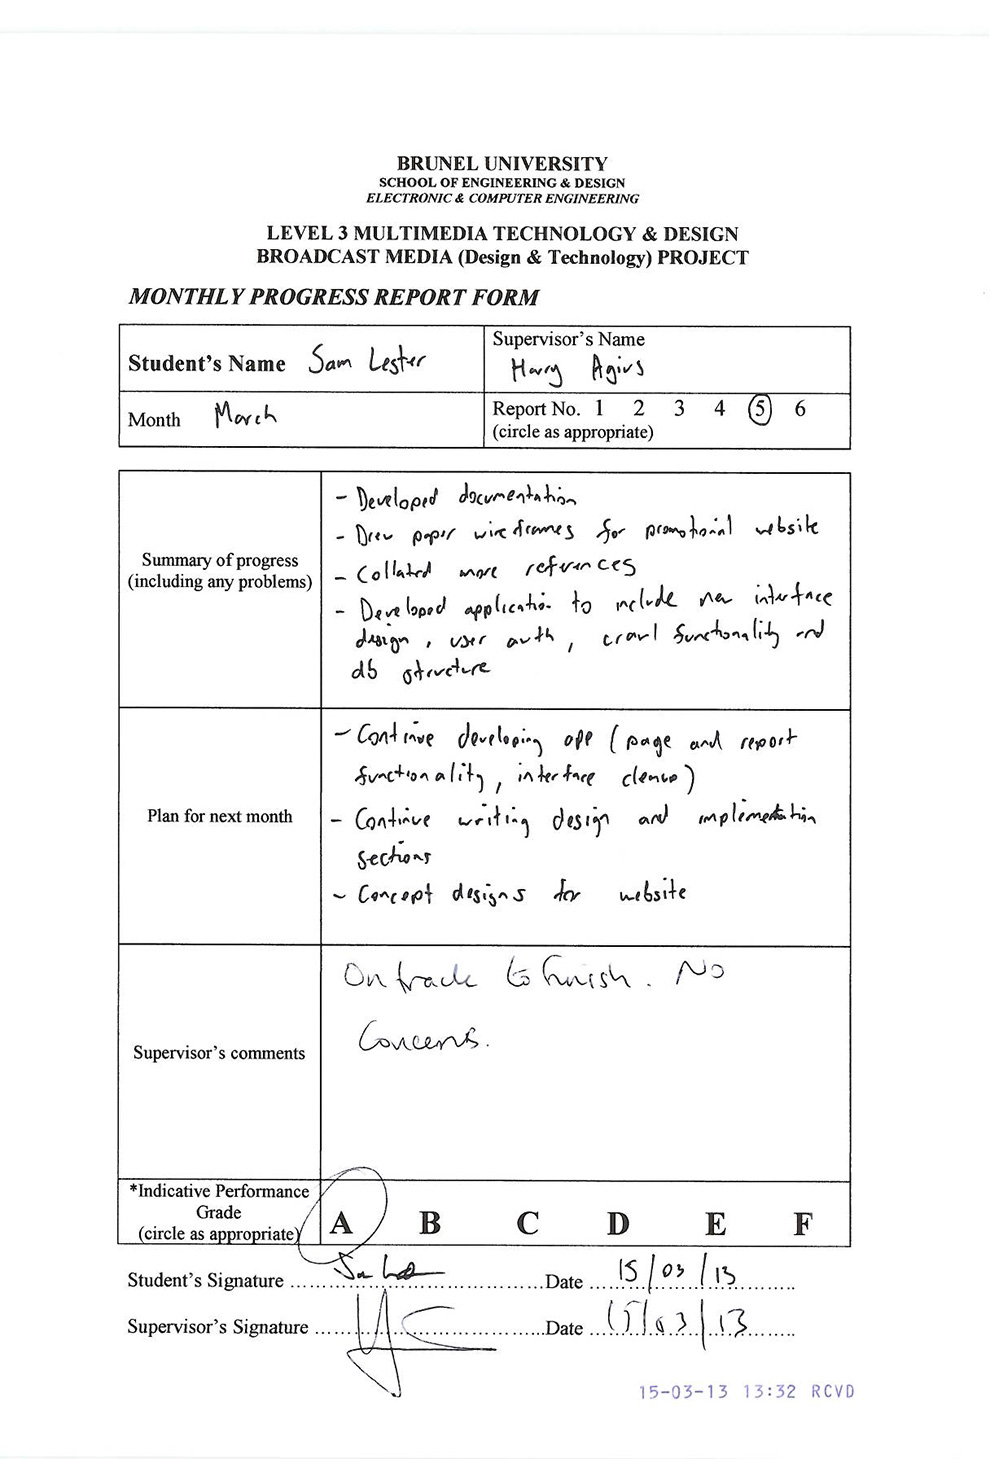 BRUNEL UNIVERSITY
SCHOOL OF ENGINEERING & DESIGN
ELECTRONIC & COMPUTER ENGINEERING
LEVEL 3 MULTIMEDIA TECHNOLOGY & DESIGN
BROADCAST MEDIA (Design & Technology) PROJECT
MONTHLY PROGRESS REPORT FORM
Student's Name Sam Lester
Supervisor's Name
Harry Agius
Month March
Report No. 1 2 3 4 5 6
(circle as appropriate)
Summary of progress
(including any problems)
- Developed documentation
- Drew paper wireframes for promotional website
- Collated more references
- Developed application to include new interface
design, user auth, crawl functionality and
db structure
Plan for next month
- Continue developing app (page and report
functionality, interface cleanup)
- Continue writing design and implementation
sections
- Concept designs for website
Supervisor's comments
On track to finish. No
Concerns.
*Indicative Performance
Grade
(circle as appropriate)
A B C D E F
Student's Signature ........ Date 15/03/13
Supervisor's Signature ........ Date 15/03/13
15-03-13 13:32 RCVD